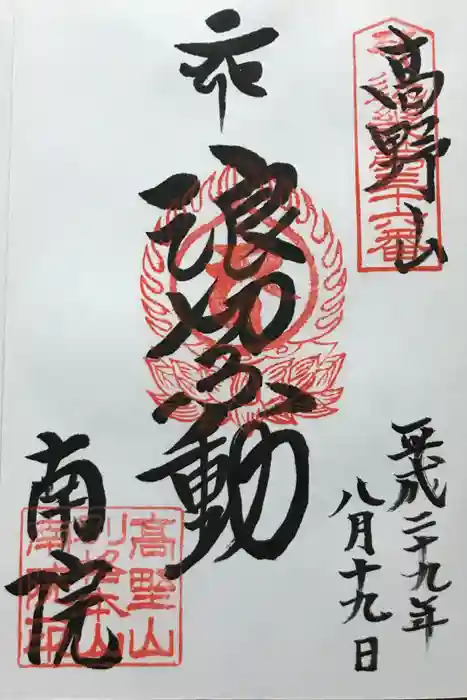 高野山
平成二十九年
八月十九日
浪切不動
南院